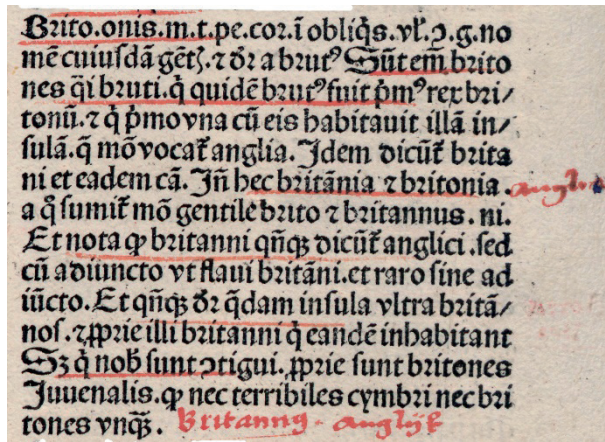 Brito.onis.m.t.pe.cor.ī obliq̃s.vł.ɔ.g.no
mē cuiusdā gētꝫ.⁊ dr̄ a brutꝰ Sūt em̄ brito
nes q̄i bruti.q̇ quidē brutꝰ fuit pͥmꝰ rex bri/
tonū.⁊ q̇ pͥmo vna cū eis habitauit illā in/
sulā.q̄ mō vocat᷑ anglia. Idem dicūt᷑ brita
ni et eadem cā. Iñ hec britānia ⁊ britonia. anglia
a q̊ sumit᷑ mō gentile brito ⁊ britannus.ni.
Et nota ꝙ britanni qñqꝫ dicūt᷑ anglici.sed
cū adiuncto vt flaui britāni.et raro sine ad
iūcto. Et qñqꝫ dr̄ q̄dam insula vltra britā/
nos.⁊ ꝓprie illi britanni q̇ eandē inhabitant
Sꝫ q̇ nob̄ sunt ɔtigui. ꝓprie sunt britones
Iuuenalis.ꝙ nec terribiles cymbri nec bri
tones vnqꝫ. Britannꝰ. anglijs